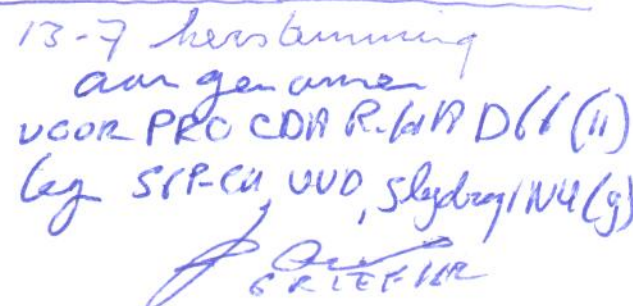 13-7 herstemming
aangenomen
VOOR PRO CDA R. WA D66 (11)
teg SGP-CU, VVD, Slydrag/NU (9)
GRIFFIER